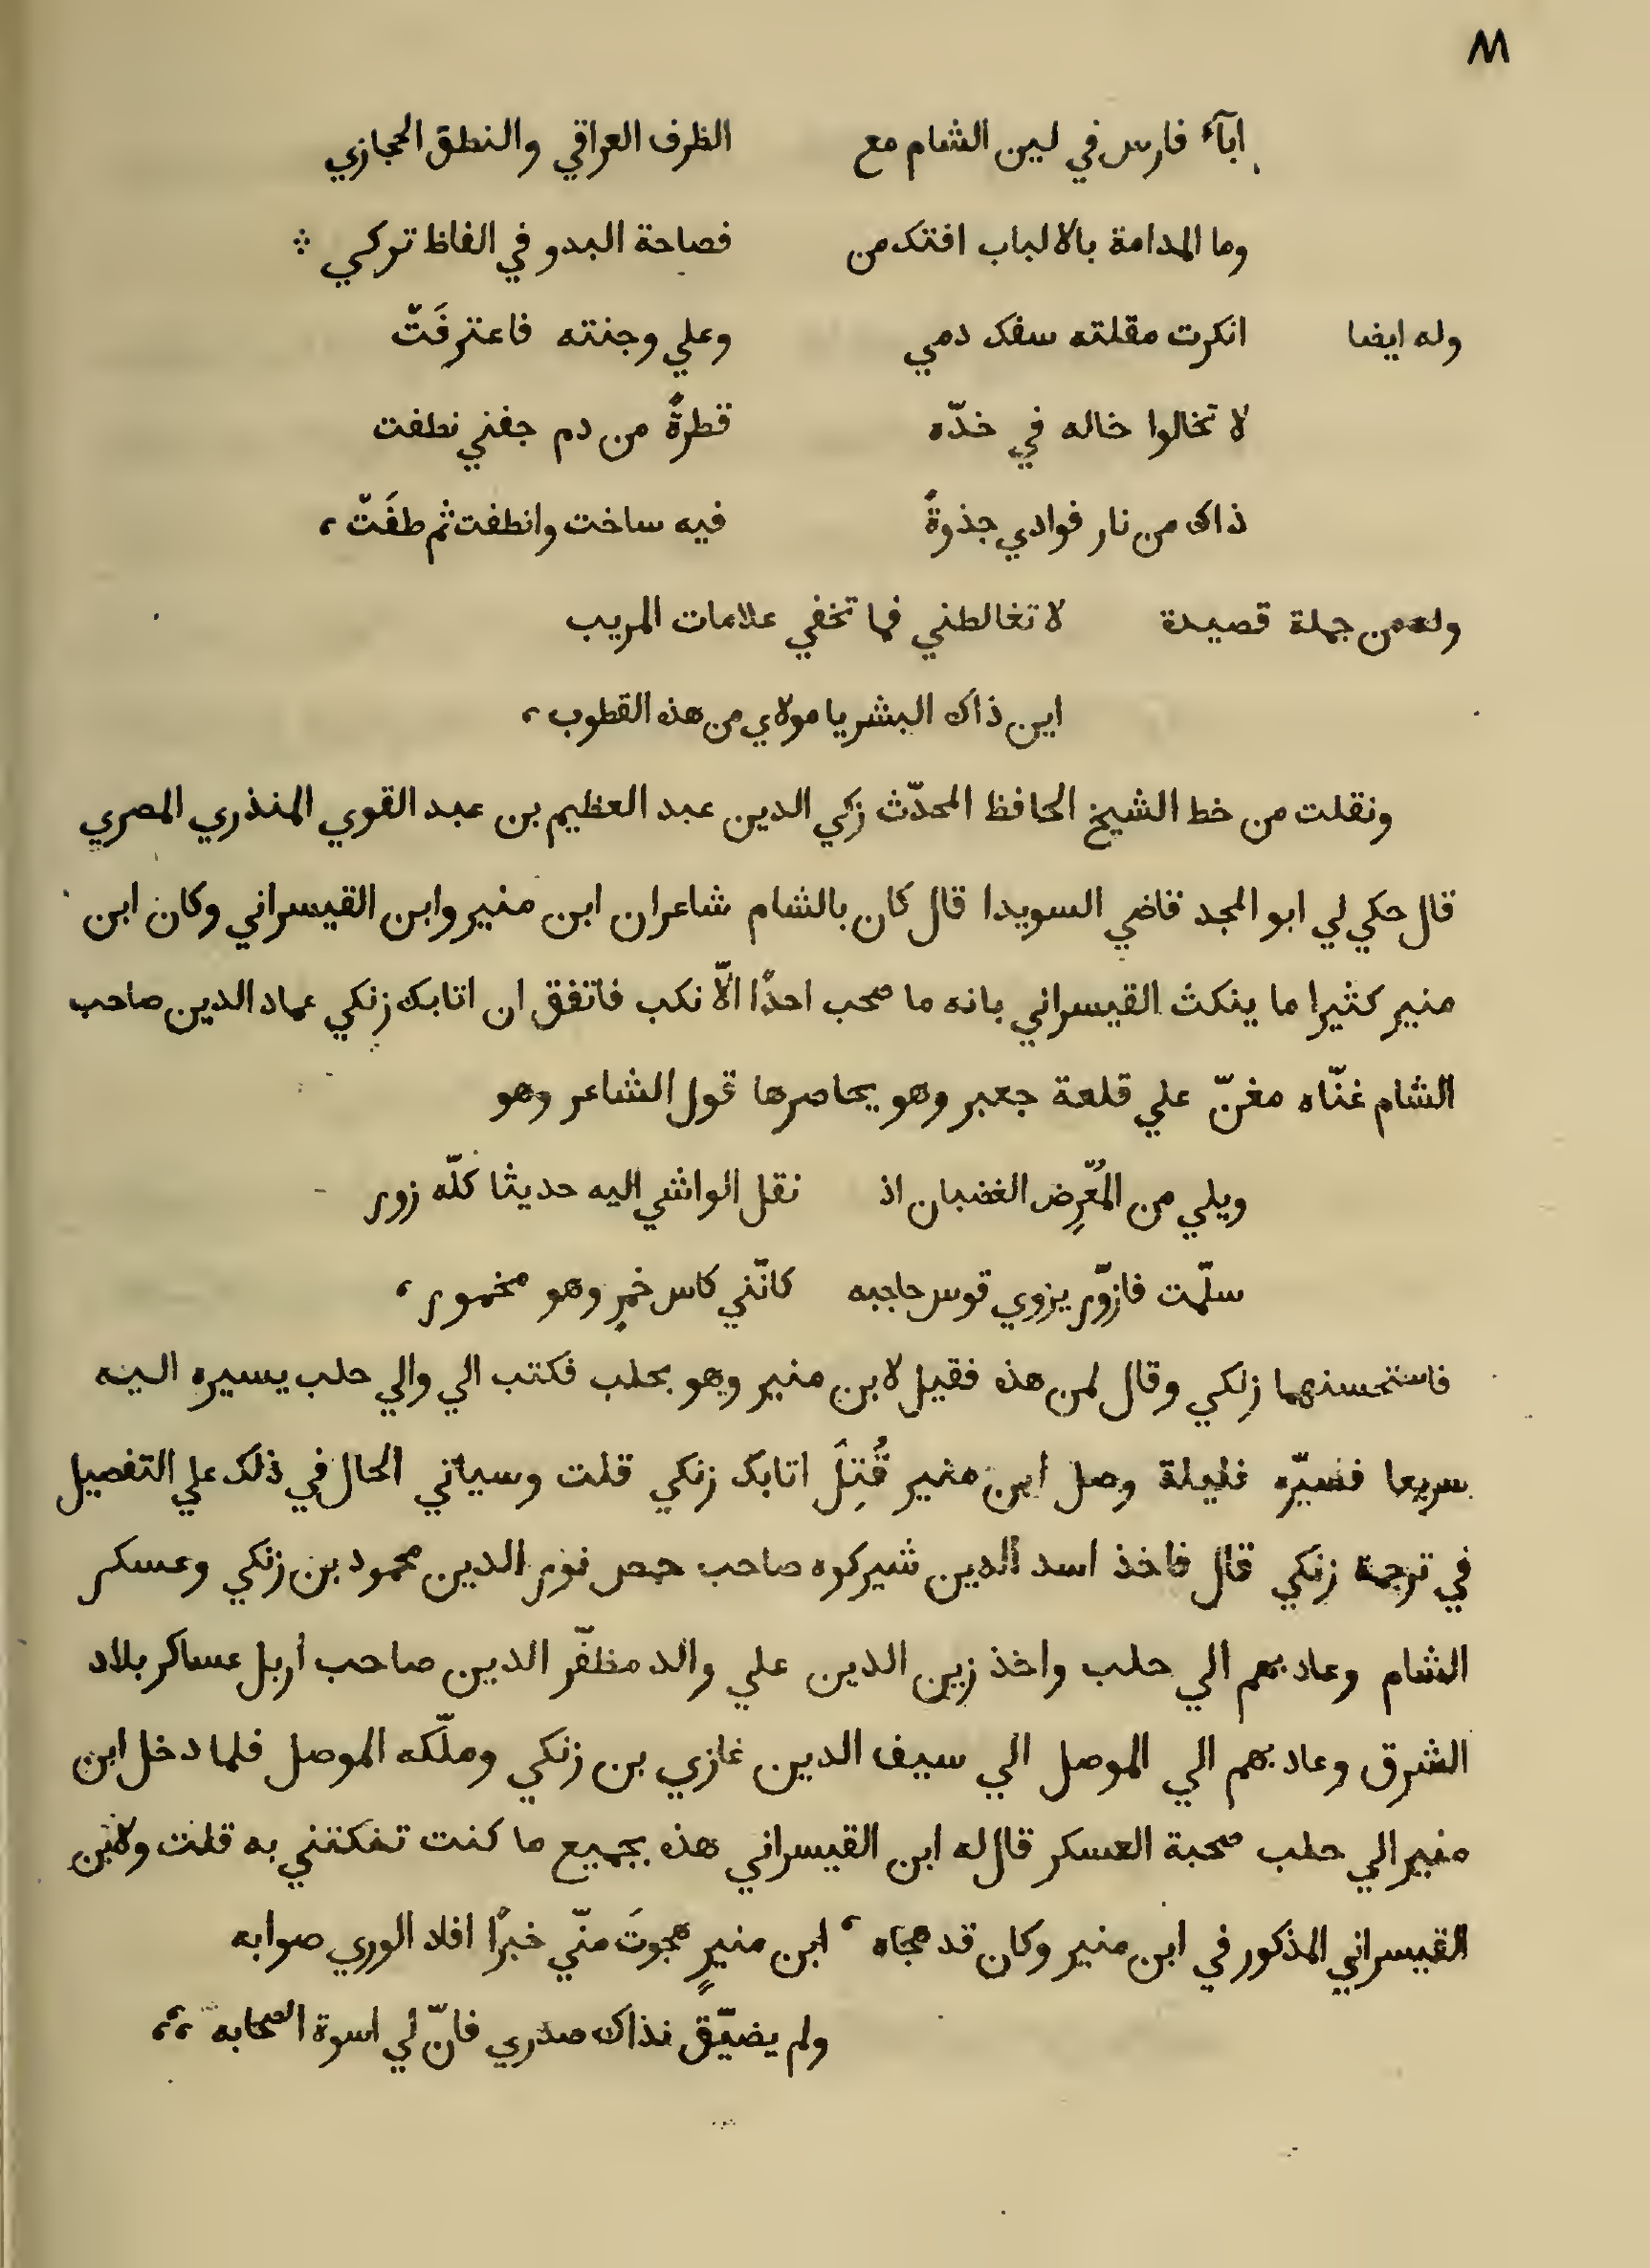 ٨٨
إبآء فارس في لين الشام مع الظرف العراقي والنطق الحجازي
وما المدامة بالالباب افتك من فصاحة البدو في الفاظ تركي ∴
وله ايضا انكرت مقلته سفك دمي وعلي وجنته فاعترفَتْ
لا تخالوا خاله في خدّه قطرةً من دم جفني نطفت
ذاك من نار فوادي جذوةً فيه ساخت وانطفت ثم طفَتْ ،
وله من جملة قصيدة لا تغالطني فما تخفي علامات المريب
اين ذاك البشر يا مولاي من هذه القطوب ،
ونقلت من خط الشيخ الحافظ المحدّث زكي الدين عبد العظيم بن عبد القوي المنذري المصري
قال حكي لي ابو المجد قاضي السويدا قال كان بالشام شاعران ابن منير وابن القيسراني وكان ابن
منير كثيرا ما ينكث القيسراني بانه ما صحب احدًا الّا نكب فاتفق ان اتابك زنكي عماد الدين صاحب
الشام غنّاه مغنّ علي قلعة جعبر وهو يحاصرها قول الشاعر وهو
ويلي من المُعْرِض الغضبان اذ نقل الواشي اليه حديثا كلّه زور
سلّمت فازوّر يزوي قوس حاجبه كانّني كاس خمرٍ وهو مخمور ،
فاستحسنهما زنكي وقال لمن هذه فقيل لابن منير وهو بحلب فكتب الي والي حلب يسيره اليه
سريعا فسيّره فليلة وصل ابن منير قُتِلَ اتابك زنكي قلت وسياتي الحال في ذلك علي التفصيل
في ترجمة زنكي قال فاخذ اسد الدين شيركوه صاحب حمص نور الدين محمود بن زنكي وعسكر
الشام وعاد بهم الي حلب واخذ زين الدين علي والد مظفّر الدين صاحب اربل عساكر بلاد
الشرق وعاد بهم الي الموصل الي سيف الدين غازي بن زنكي وملّكه الموصل فلما دخل ابن
منير الي حلب صحبة العسكر قال له ابن القيسراني هذه بجميع ما كنت تنكتني به قلت ولابن
القيسراني المذكور في ابن منير وكان قد هجاه ، ابن منيرٍ هجوتَ منّي خبرًا افاد الوري صوابه
ولم يضيّق بذاك صدري فانّ لي اسوة الصحابه ،،